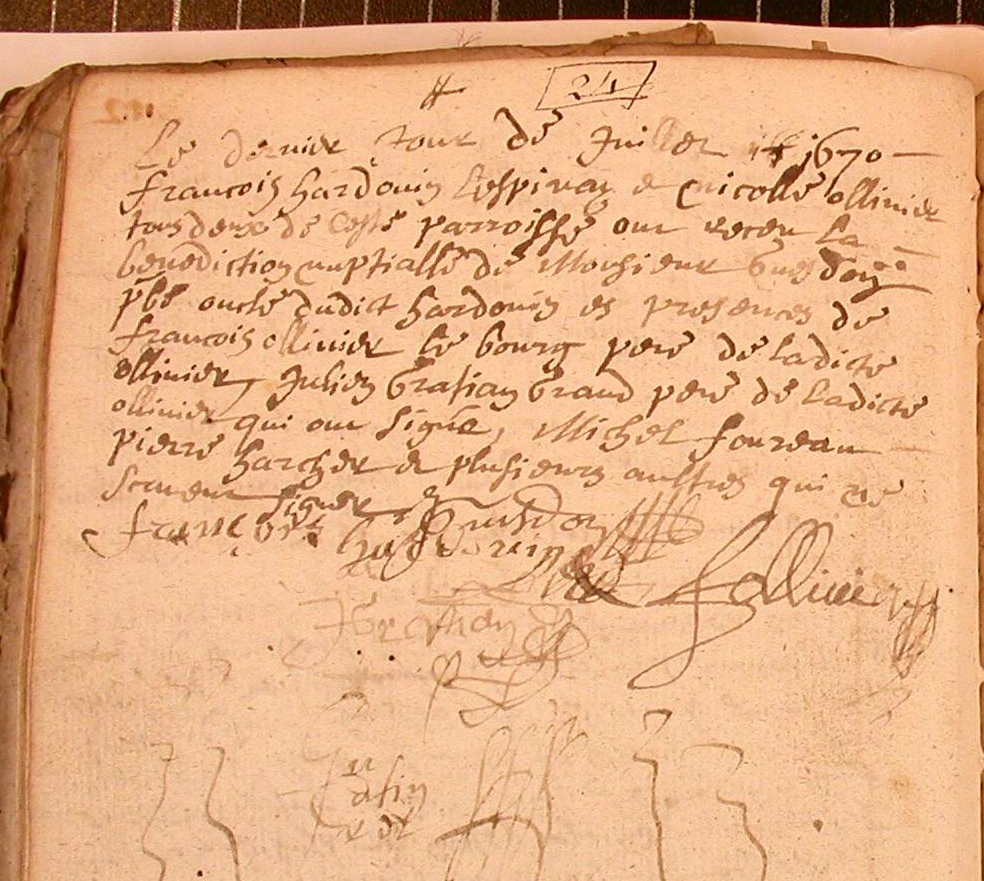 24
Le dernier Jour de Juillet 1670
francois hardouin Lespinay & nicolle ollinier
tous deux de Ceste parroisse ont receu la
benediction nuptialle de Monsieur
pbr oncle dudict hardouin es presences de
francois ollinier le bourg pere de ladicte
ollinier, Julien Grasian Grand pere de ladicte
ollinier qui ont signe, Michel foureau
pierre harcher & plusieurs aultres qui ne
scavent signer
francois hardouin
follinier